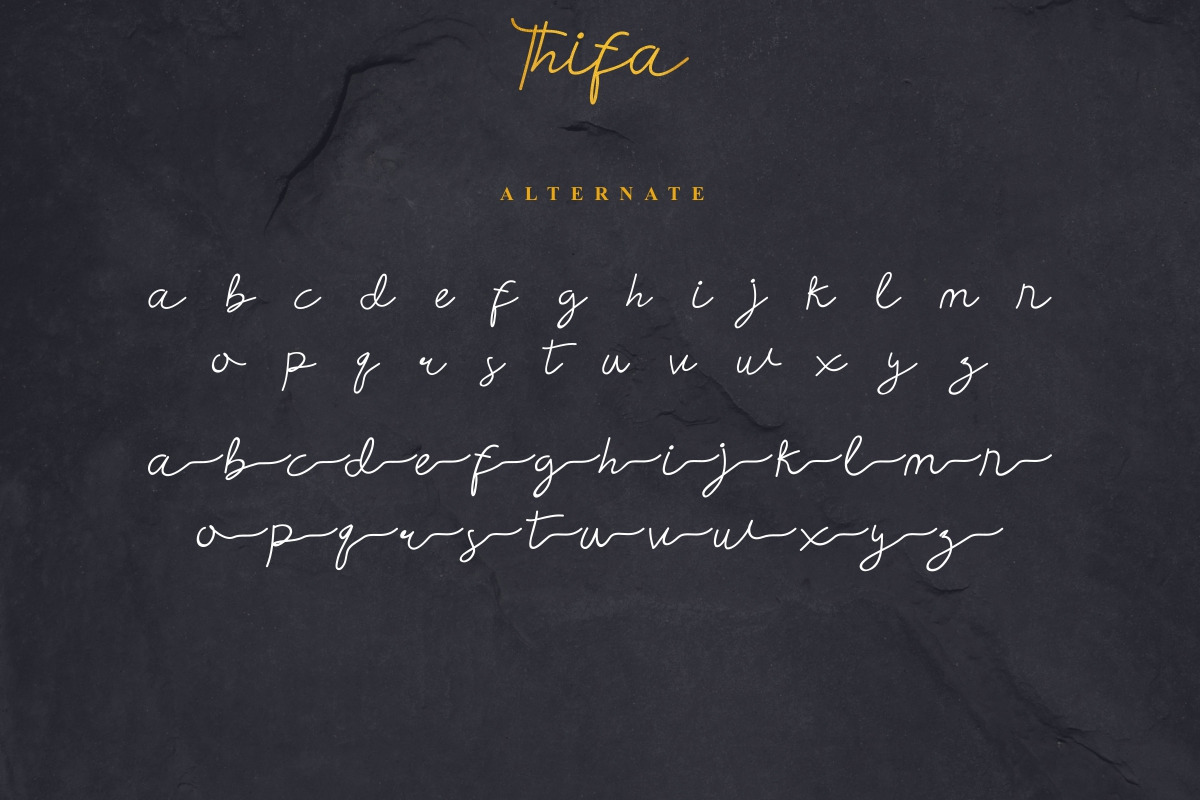 Thifa
ALTERNATE
a b c d e f g h i j k l m n
o p q r s t u v w x y z
a b c d e f g h i j k l m n
o p q r s t u v w x y z